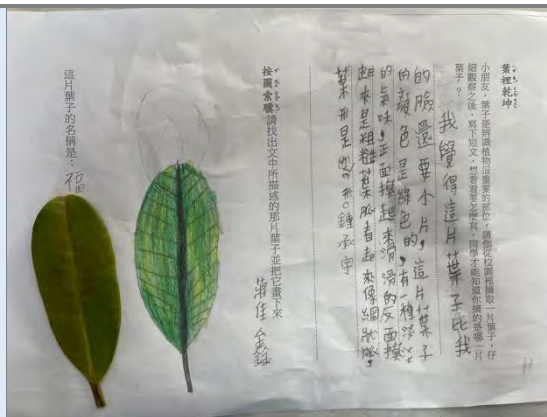 葉裡乾坤
小朋友，葉子是辨識植物最重要的部位，請你從校園裡摘取一片葉子，仔
細觀察之後，寫下短文，想看看要怎麼寫，同學才能知道你摘的是哪一片
葉子？
我覺得這片葉子比我
的臉還要小片，這片葉子
的顏色是綠色的，有一種淡淡
的氣味，正面摸起來滑滑的反面摸
起來是粗糙葉脈看起來像網狀脈，
葉形是 形。鍾承宇
按圖索驥請找出文中所描述的那片葉子並把它畫下來
蔣佳
這片葉子的名稱是：福